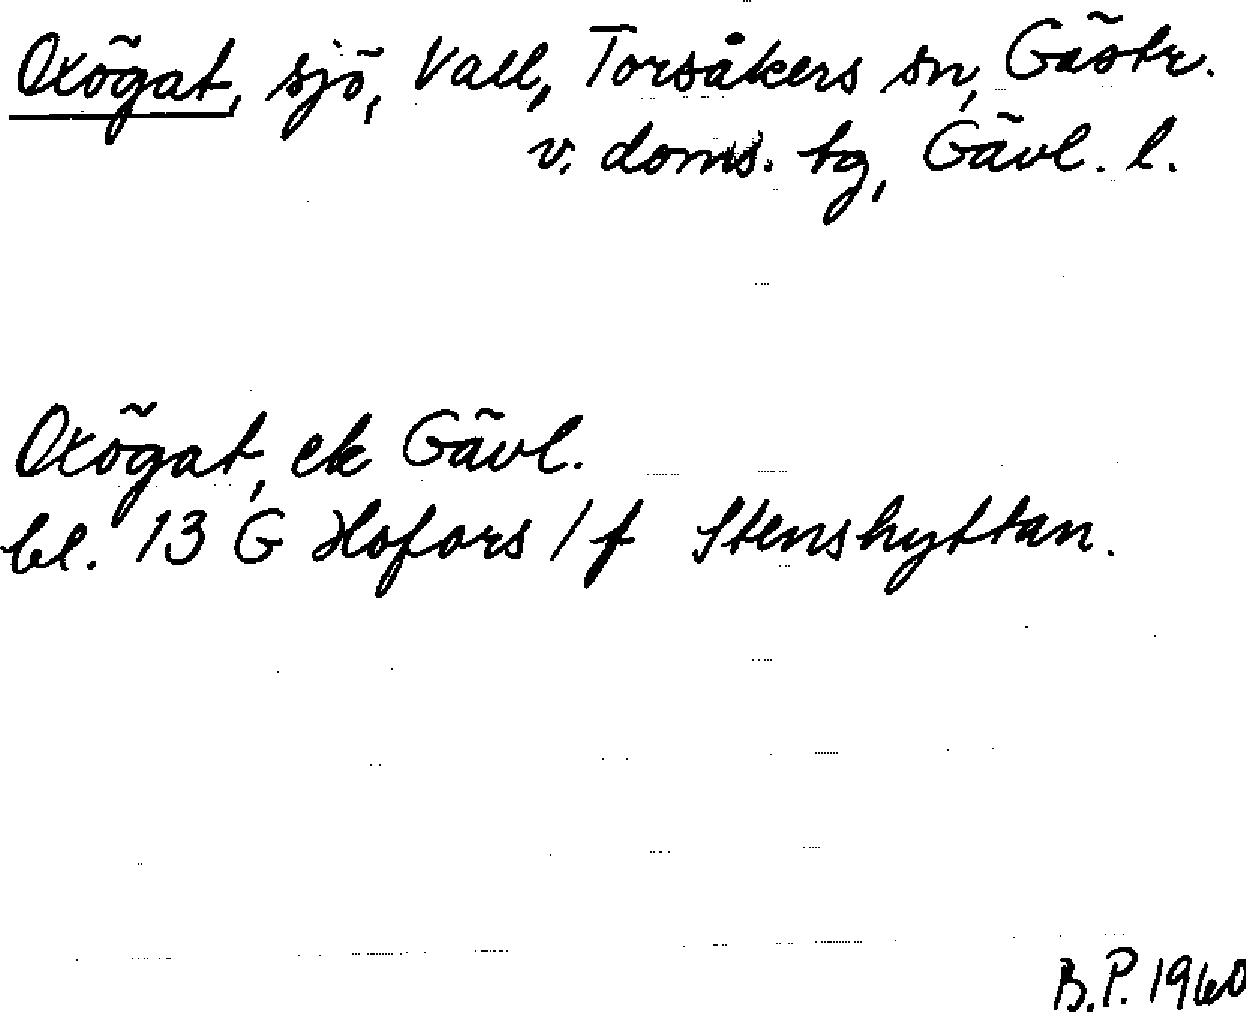 Oxögat, sjö, Vall, Torsåkers sn, Gästr.
v. doms. tg, Gävl. l.
Oxögat, ek Gävl.
bl. 13 G Hofors / f Stenshyttan.
B.P. 1960